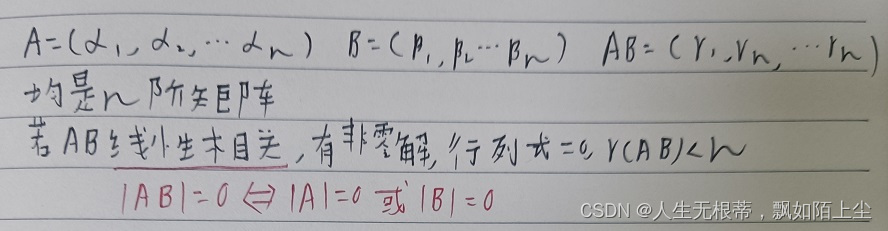 A=(α₁, α₂, ⋯ αₙ) B=(β₁, β₂ ⋯ βₙ) AB=(γ₁, γₙ, ⋯ γₙ)
均是n阶矩阵
若AB线性相关,有非零解,行列式=0, r(AB)<n
|AB|=0 ⇔ |A|=0 或 |B|=0
CSDN @人生无根蒂,飘如陌上尘